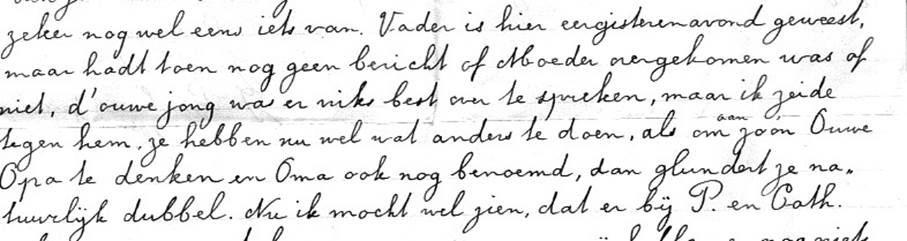 zeker nog wel eens iets van. Vader is hier eergisterenavond geweest,
maar hadt toen nog geen bericht of Moeder overgekomen was of
niet, d'ouwe jong was er niks best over te spreken, maar ik zeide
tegen hem, ze hebben nu wel wat anders te doen, als om aan zoo'n Ouwe
Opa te denken en Oma ook nog benoemd, dan glundert je na-
tuurlijk dubbel. Nu ik mocht wel zien, dat er bij P. en Cath.